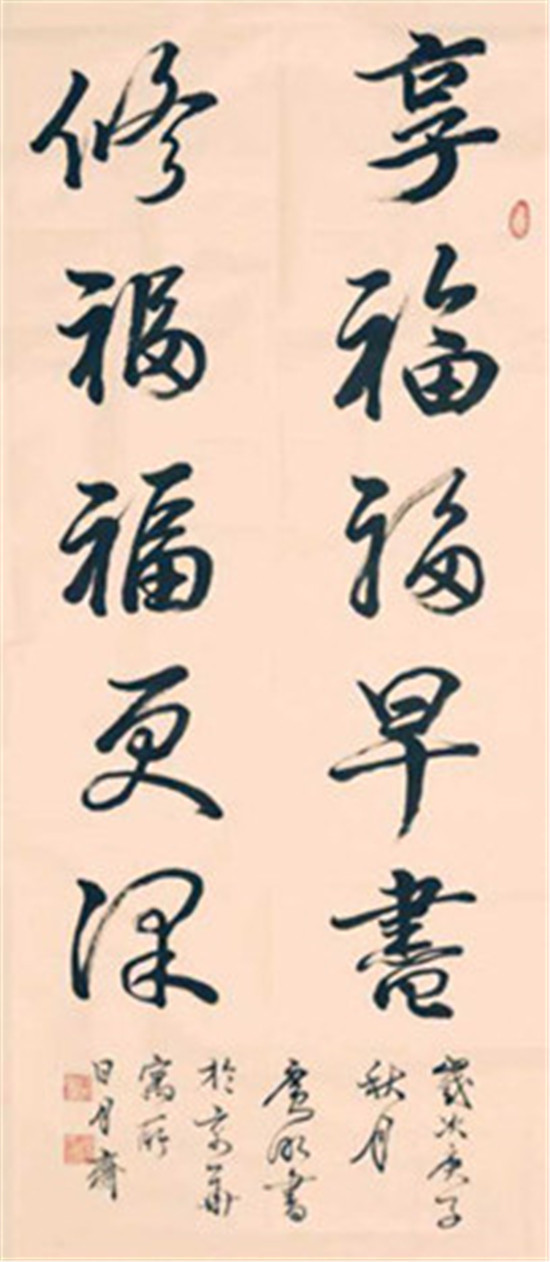 享福福早盡
修福福更深
歲次庚子
秋月
書
於京華
寓所
日月齋